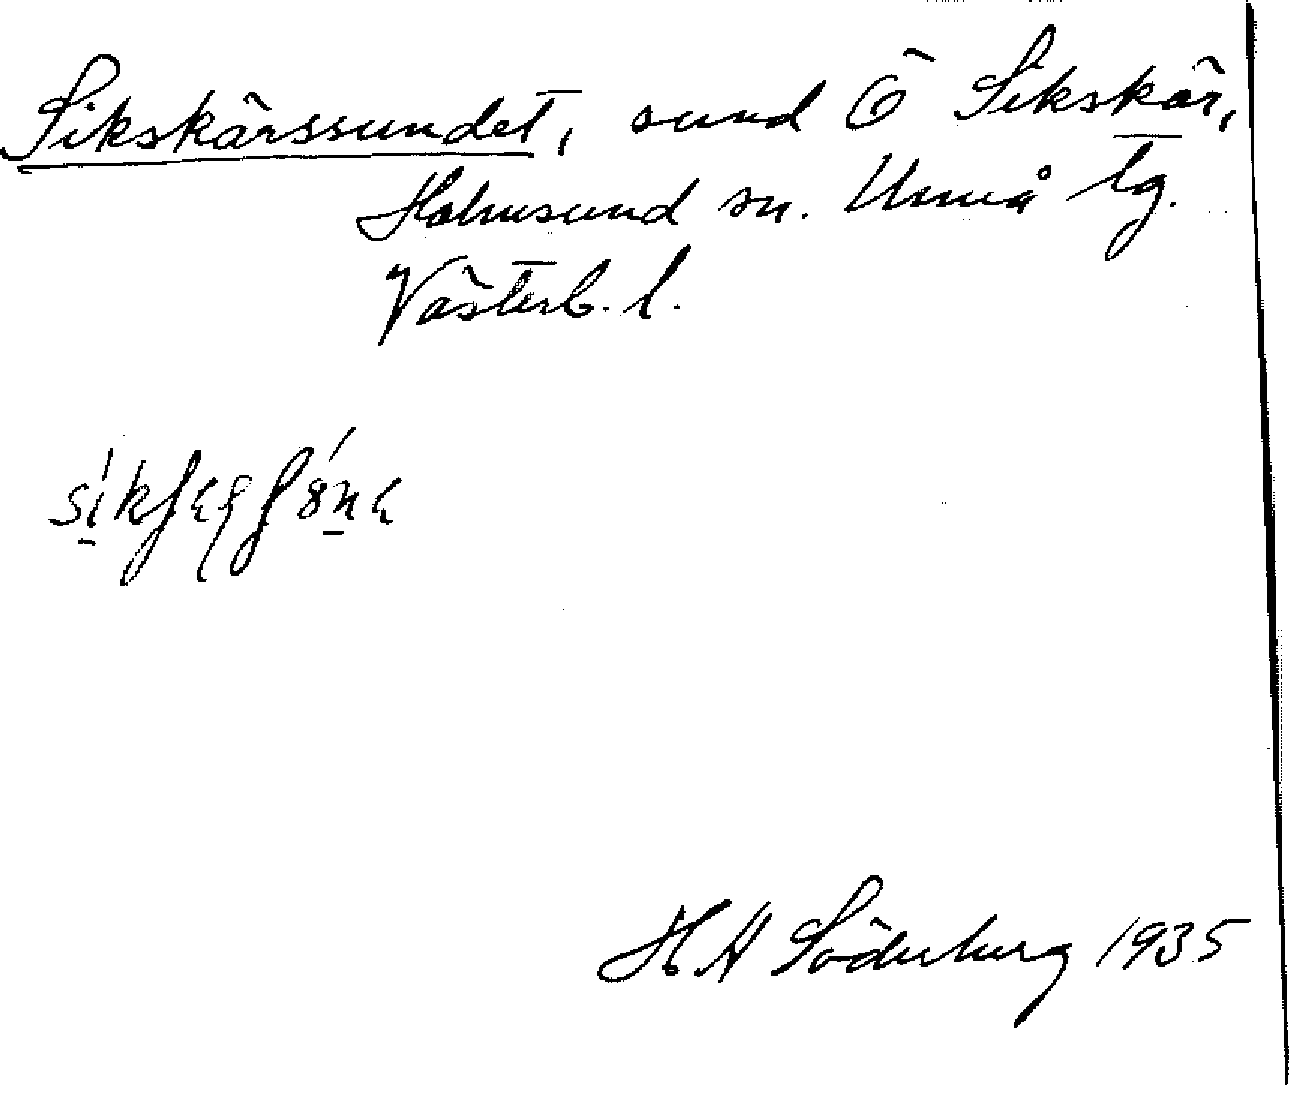 Sikskärssundet, sund Ö Sikskär,
Holmsund sn. Umeå tg.
Västerb. l.
H A Söderberg 1935